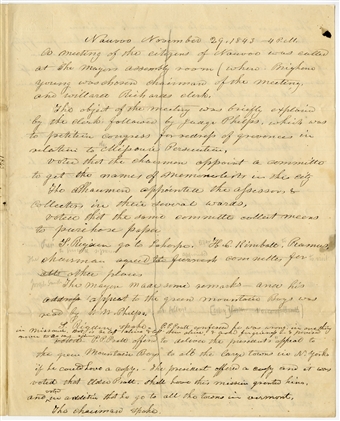 Nauvoo November 29, 1843 – 4 P.M.
A meeting of the citizens of Nauvoo was called
at the Mayors assembly room (when Brigham
Young was chosen chairman of the meeting,
and Willard Richards clerk.
The object of the meeting was briefly explained
by the clerk followed by Judge Phelps, which was
to petition congress for redress of grievances in
relation to Missouri Persecution,
voted that the chairman appoint a committe
to get the names of memorialists in the city
The Chairman appointed the assessors &
collectors in their several wards,
voted that the same committe collect means
to purchase paper
go to Laharpe. H. C. Kimball,
chairman agreed to furnish committes for
all other places
The mayor made some remarks – and his
appeal to the green mountain boys was
read by W. W. Phelps.
P. Pratt confessed he was wrong in one thing
in Missouri,
P. P. Pratt offers to deliver the president's appeal to
the green Mountain Boys to all the large towns in N. York
if he could have a copy. The president offered a copy and it was
voted that Elder Pratt shall have this mission granted him,
and, voted in addition that he go to all the towns in vermont,
The chairman spoke